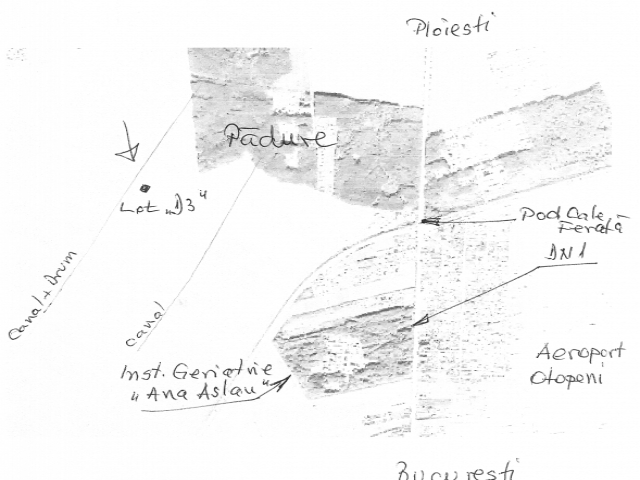 Ploiesti
Pădure
Lot „D3"
Pod Cale
Ferată
DN1
Canal + Drum
canal
Inst. Geriatrie
"Ana Aslau"
Aeroport
Otopeni
Bucuresti